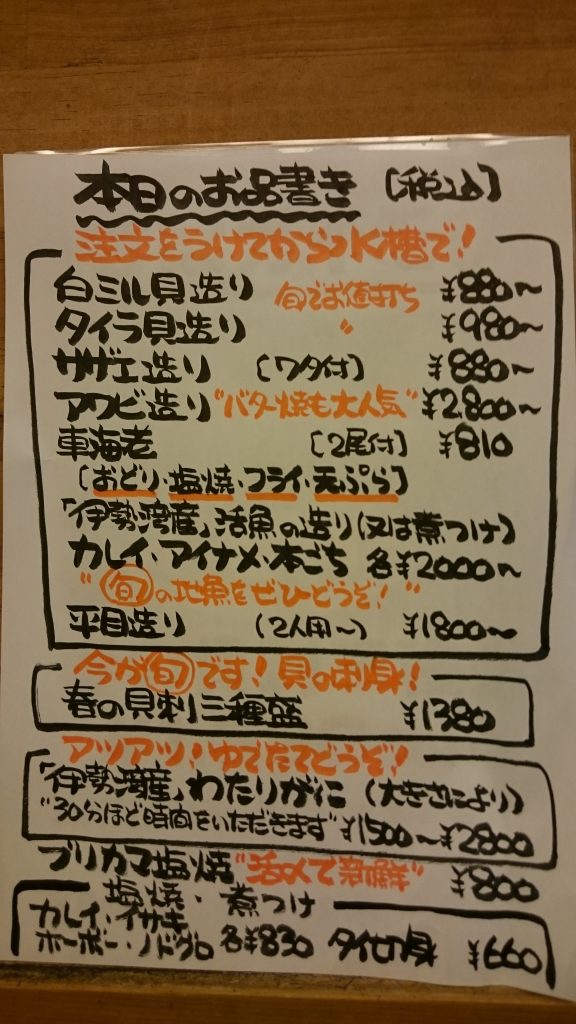 本日のお品書き [税込]
注文をうけてから水槽で!
白ミル貝造り 旬でお値打ち ¥880～
タイラ貝造り 〃 ¥980～
サザエ造り [ワタ付] ¥880～
アワビ造り "バター焼も大人気" ¥2.800～
車海老 [2尾付] ¥810
[おどり・塩焼・フライ・天ぷら]
「伊勢湾産」活魚の造り(又は煮つけ)
カレイ・アイナメ・本ごち 各¥2000～
"旬の地魚をぜひどうぞ!"
平目造り (2人用～) ¥1800～
今が旬です! 貝の刺身!
春の貝刺三種盛 ¥1380
アツアツ! ゆでたてどうぞ!
「伊勢湾産」わたりがに (大きさにより)
"30分ほど時間をいただきます" ¥1500～¥2800
ブリカマ塩焼 "活〆で新鮮" ¥800
塩焼・煮つけ
カレイ・イサキ
ホーボー・ノドグロ 各¥830 タイ切身 ¥660